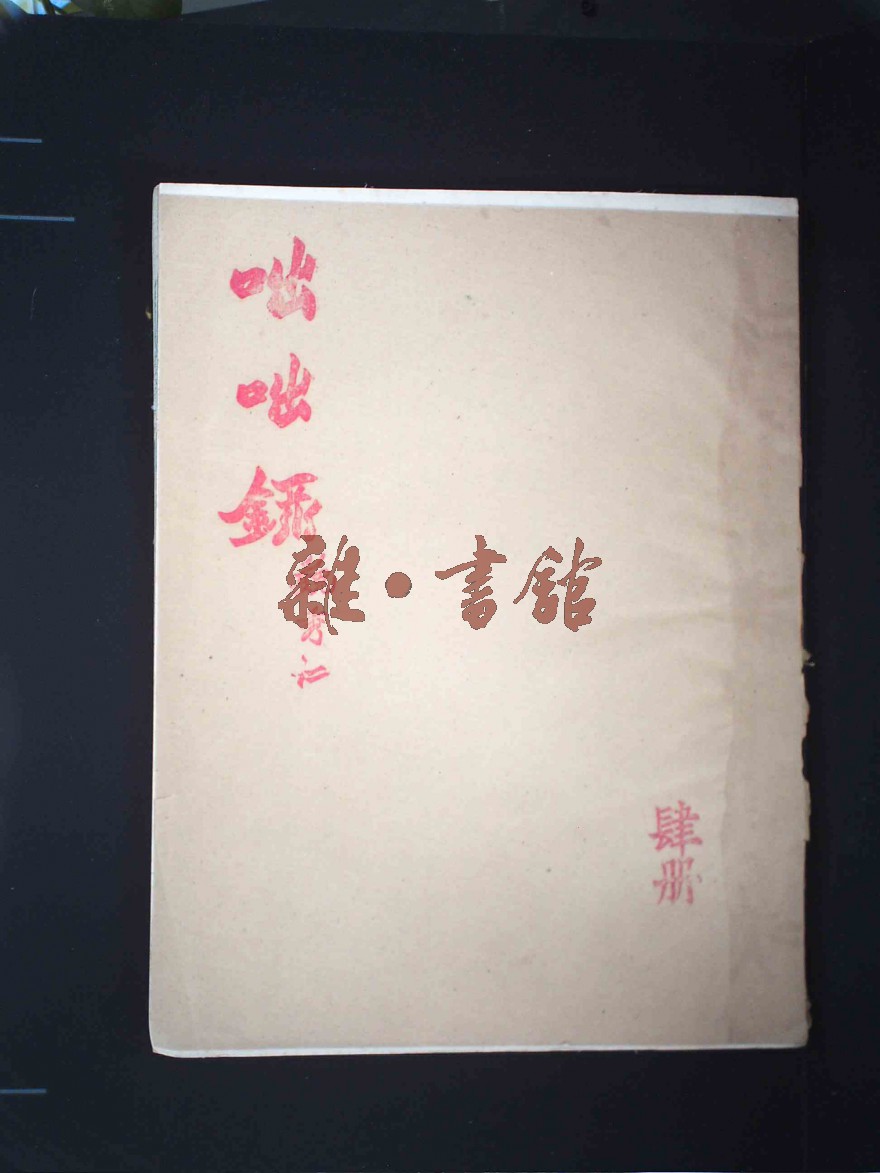 肆册
咄咄錄
雜·書館